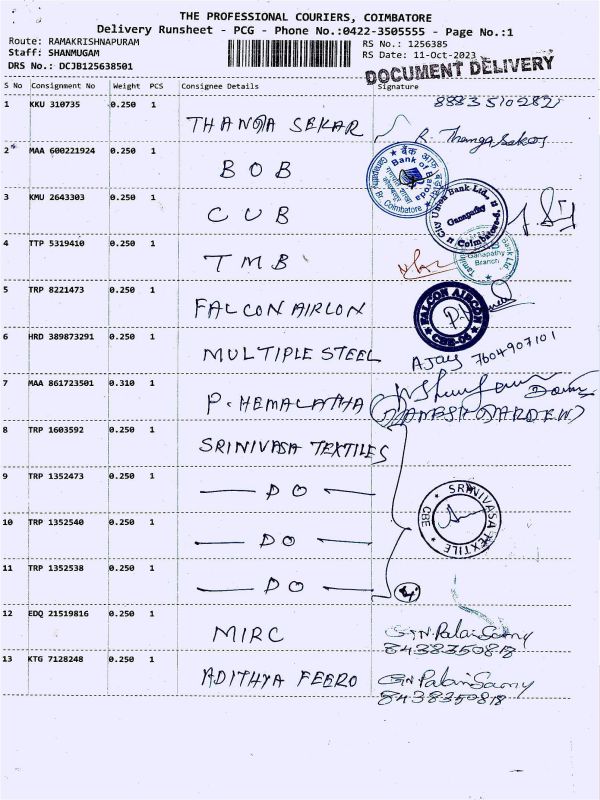 THE PROFESSIONAL COURIERS, COIMBATORE
Delivery Runsheet - PCG - Phone No.:0422-3505555 - Page No.:1
Route: RAMAKRISHNAPURAM
RS No.: 1256385
Staff: SHANMUGAM
RS Date: 11-Oct-2023
DRS No.: DCJB125638501
DOCUMENT DELIVERY
S No Consignment No Weight PCS Consignee Details Signature
1 KKU 310735 0.250 1 THANGA SEKAR R. Thanga Sekar
2 MAA 600221924 0.250 1 BOB
बैंक ऑफ़ बड़ौदा Bank of Baroda Ganapathy Br. Coimbatore
3 KMU 2643303 0.250 1 CUB
City Union Bank Ltd., Ganapathy Coimbatore-6.
4 TTP 5319410 0.250 1 TMB
Bank Ltd. Ganapathy Branch
5 TRP 8221473 0.250 1 FALCON AIRLON
FALCON AIRCON CBE-06
6 HRD 389873291 0.250 1 MULTIPLE STEEL AJay 7604907101
7 MAA 861723501 0.310 1 P. HEMALATHA
8 TRP 1603592 0.250 1 SRINIVASA TEXTILES
9 TRP 1352473 0.250 1 — DO —
SRINIVASA TEXTILE CBE
10 TRP 1352540 0.250 1 — DO —
11 TRP 1352538 0.250 1 — DO — 4
12 EDQ 21519816 0.250 1 MIRC G.N. PalaniSamy
8438350818
13 KTG 7128248 0.250 1 ADITHYA FEERO G.N. PalaniSamy
8438350818